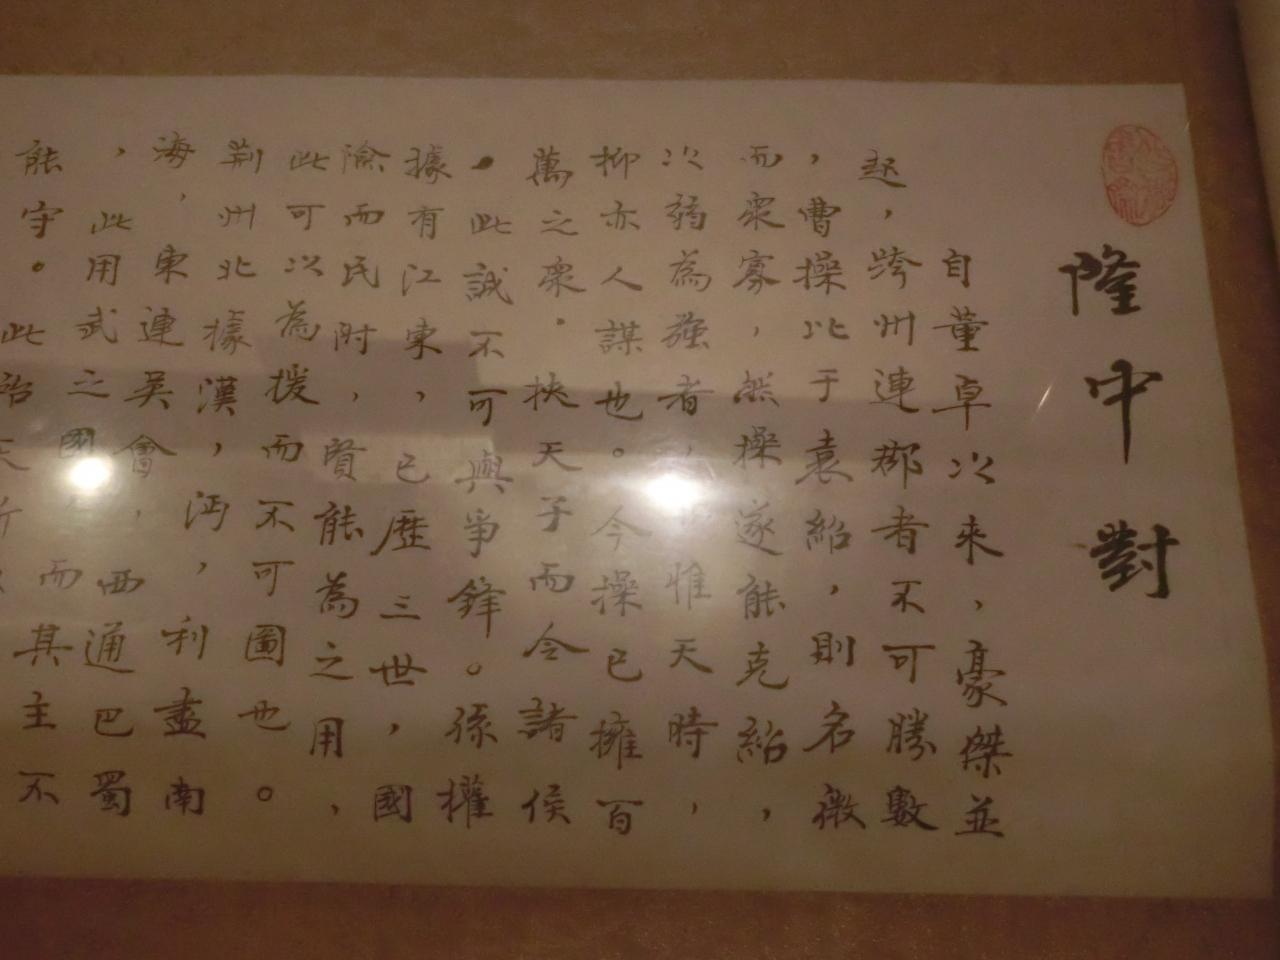 隆中對
自董卓以來，豪傑並
起，跨州連郡者不可勝數
，曹操比于袁紹，則名微
而眾寡，然操遂能克紹，
以弱為強者，惟天時，
抑亦人謀也。今操已擁百
萬之眾．挾天子而令諸侯
．此誠不可與爭鋒。孫權
據有江東，已歷三世，國
險而民附，賢能為之用，
此可以為援而不可圖也。
荆州北據漢，沔，利盡南
海，東連吳會，西通巴蜀
，此用武之國 而其主不
能守。此殆天所